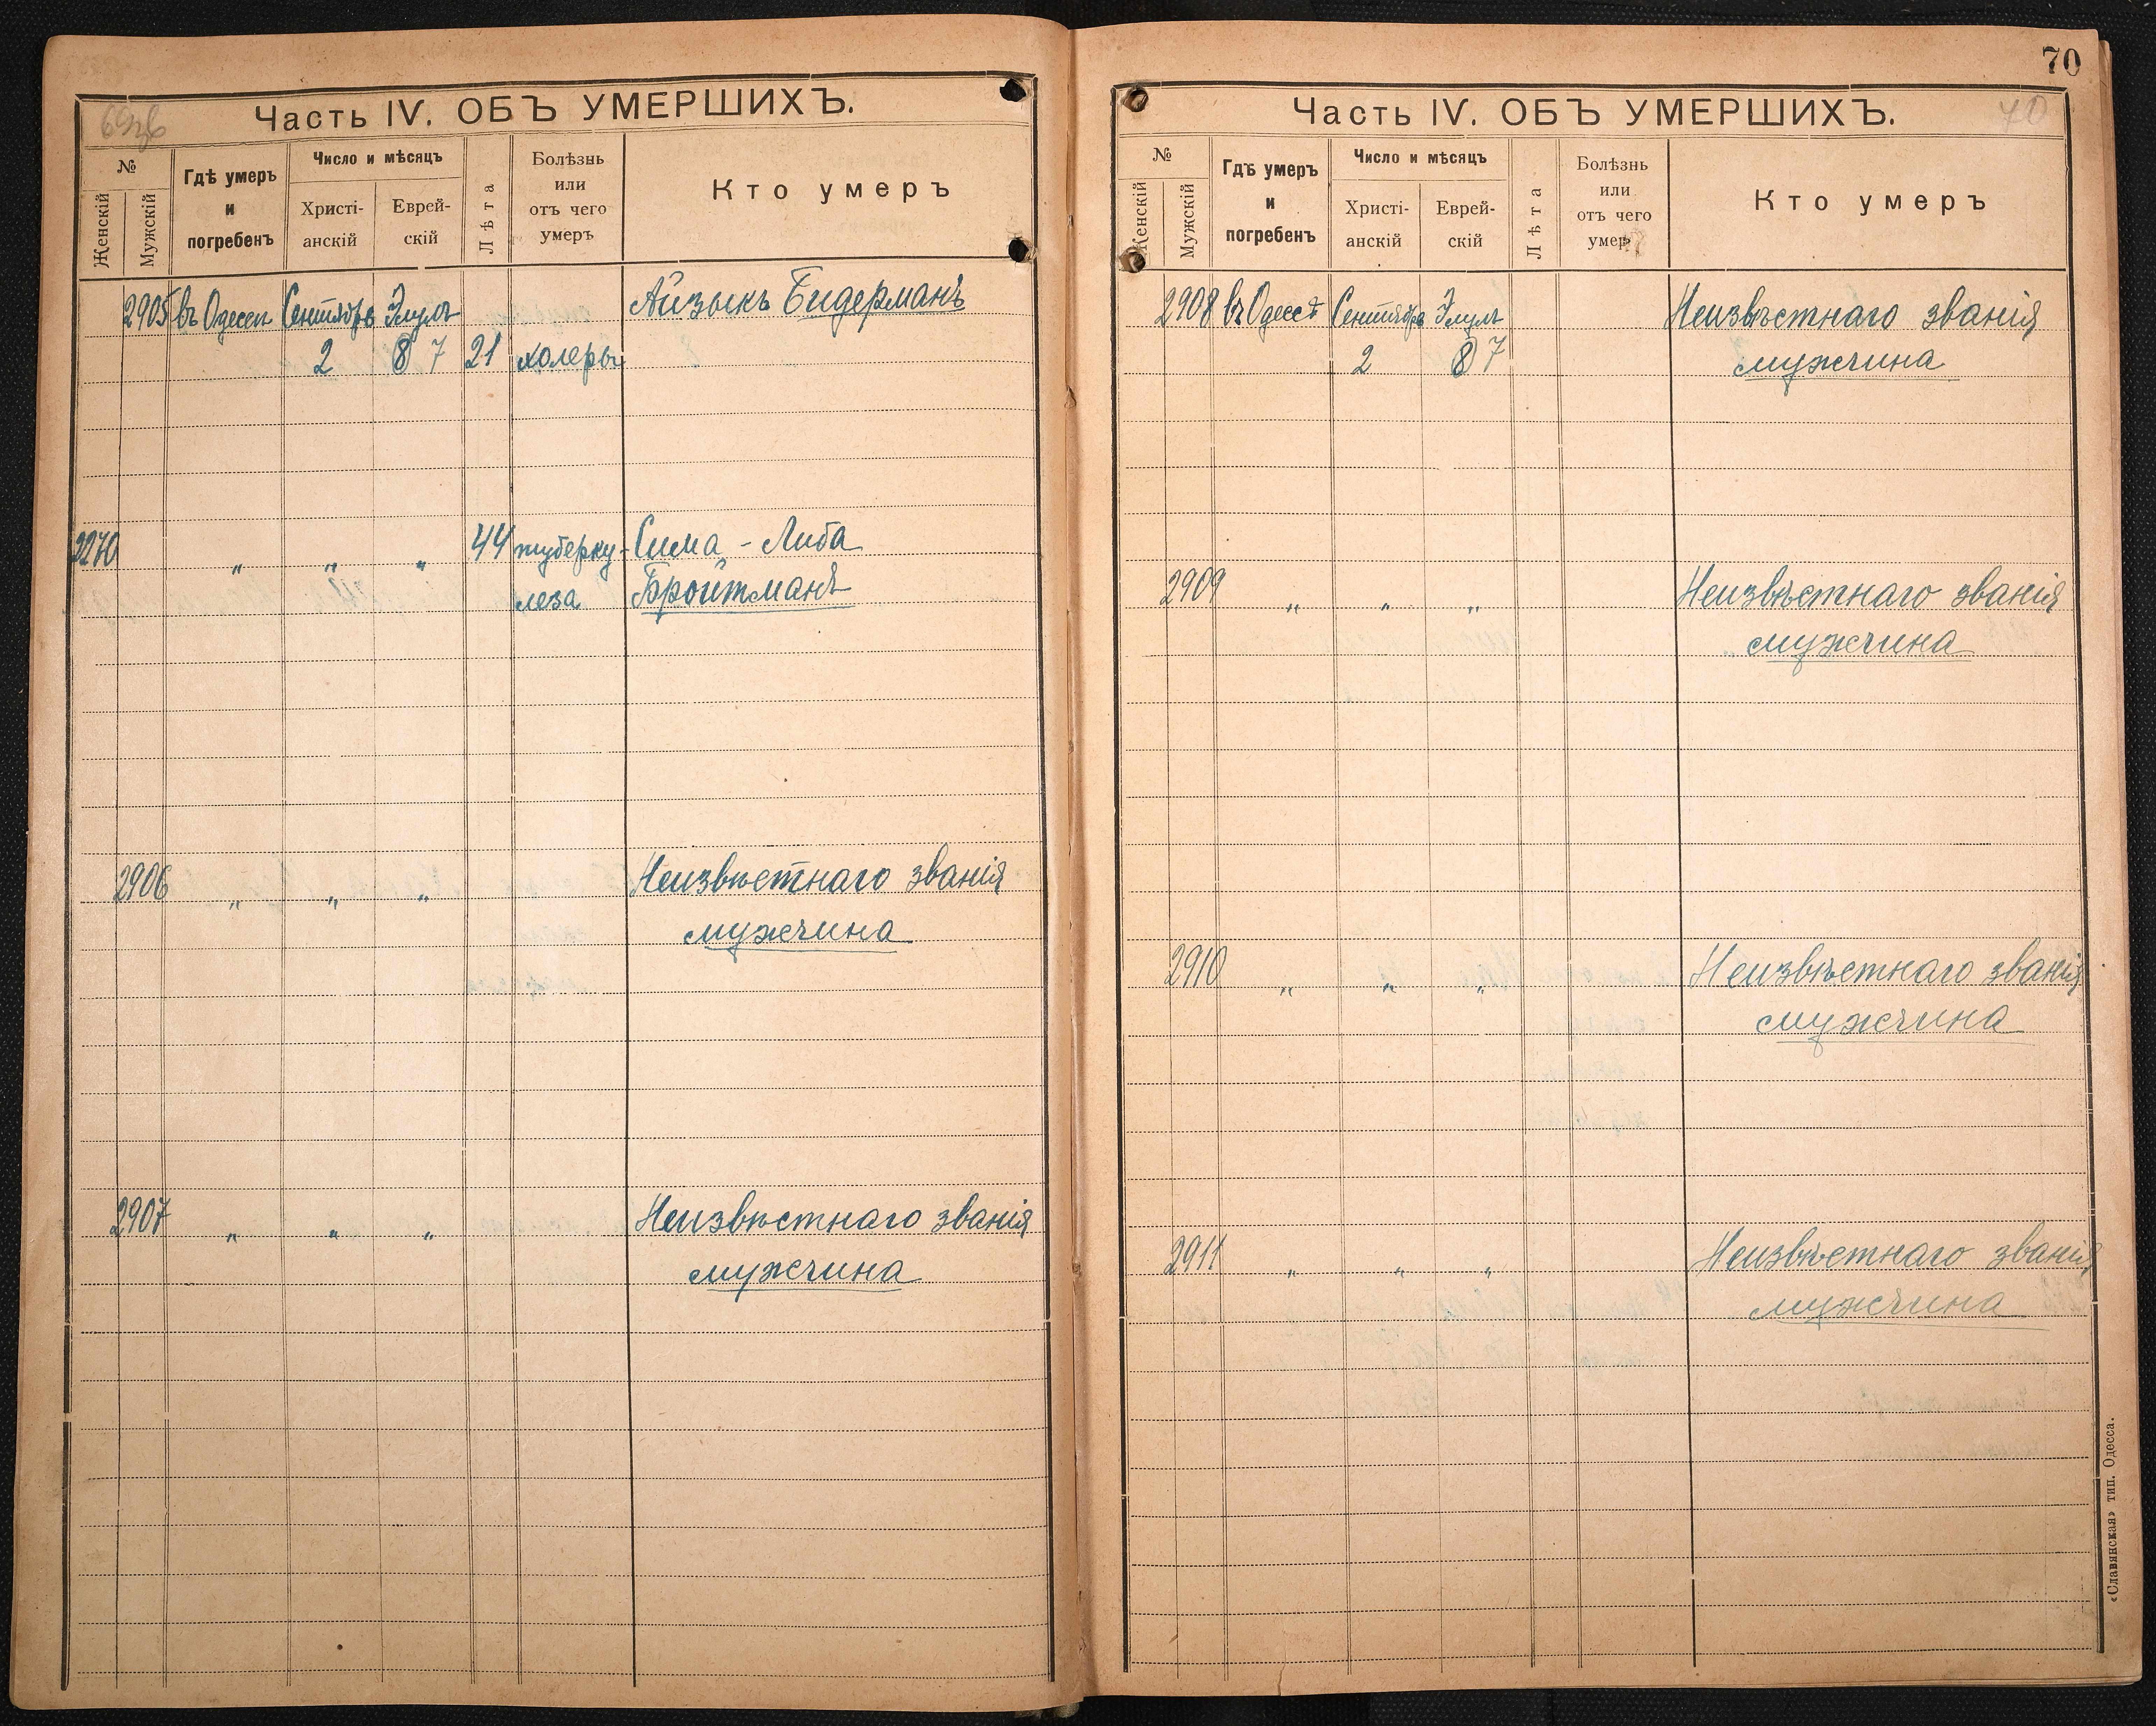 69об
Часть IV. ОБЪ УМЕРШИХЪ.
№
Женскій
Мужскій
Гдѣ умеръ
и
погребенъ
Число и мѣсяцъ
Христі-
анскій
Еврей-
скій
Лѣта
Болѣзнь
или
отъ чего
умеръ
Кто умеръ
2905 въ Одессѣ Сентябрь Элулъ Айзыкъ Бидерманъ
2 8 7 21 холеры
2270 „ „ „ 44 туберку- Сима - Либа
леза Бройтманъ
2906 „ „ „ Неизвѣстнаго званія
мужчина
2907 „ „ „ Неизвѣстнаго званія
мужчина
70
Часть IV. ОБЪ УМЕРШИХЪ.
70
№
Женскій
Мужскій
Гдѣ умеръ
и
погребенъ
Число и мѣсяцъ
Христі-
анскій
Еврей-
скій
Лѣта
Болѣзнь
или
отъ чего
умеръ
Кто умеръ
2908 въ Одессѣ Сентябрь Элулъ Неизвѣстнаго званія
2 8 7 мужчина
2909 „ „ „ Неизвѣстнаго званія
мужчина
2910 „ „ „ Неизвѣстнаго званія
мужчина
2911 „ „ „ Неизвѣстнаго званія
мужчина
«Славянская» тип. Одесса.